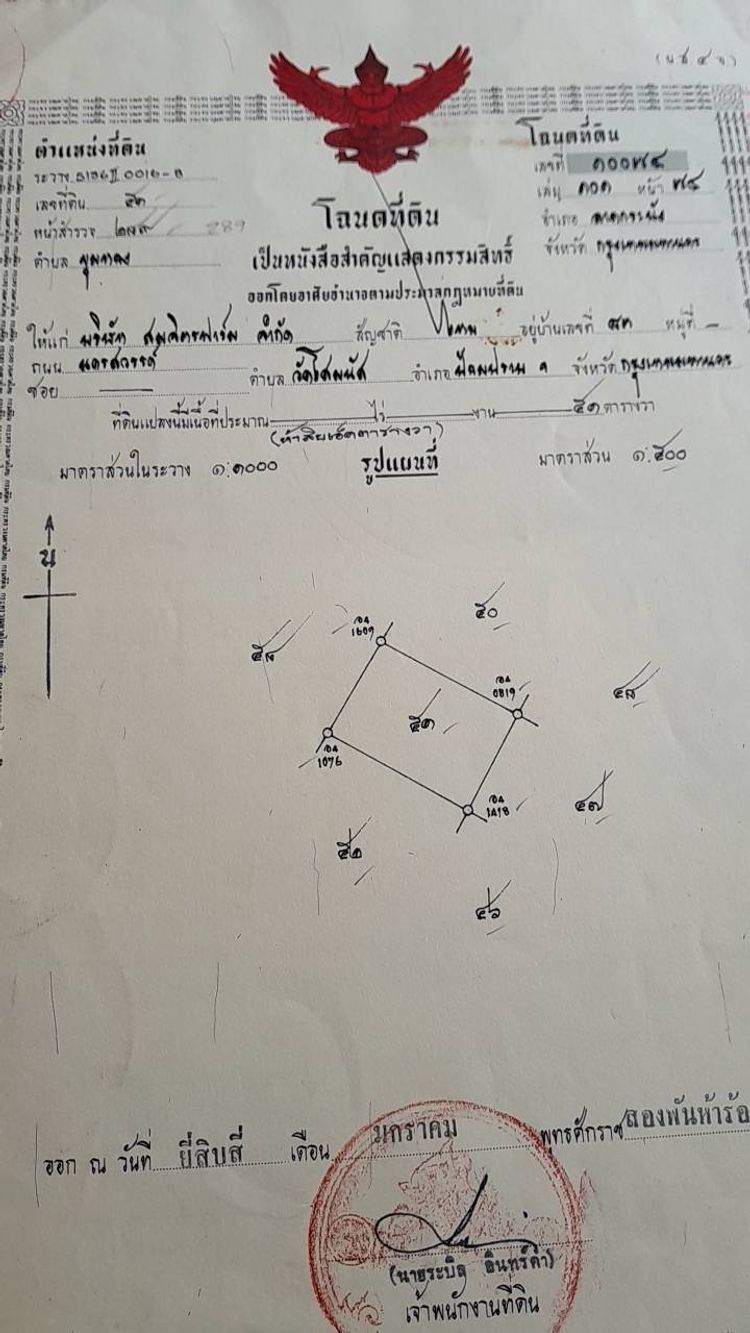 (น.ส. ๔ จ)
ตำแหน่งที่ดิน
ระวาง 5136 II 0016-
เลขที่ดิน ๕๑
หน้าสำรวจ 289
ตำบล
โฉนดที่ดิน
เลขที่ ๑๐๐๗๔
เล่ม ๑๐๑ หน้า ๗๔
อำเภอ ลาดกระบัง
จังหวัด กรุงเทพมหานคร
โฉนดที่ดิน
เป็นหนังสือสำคัญแสดงกรรมสิทธิ์
ออกโดยอาศัยอำนาจตามประมวลกฎหมายที่ดิน
ให้แก่ บริษัท สมจิตรฟาร์ม จำกัด สัญชาติ ไทย อยู่บ้านเลขที่ หมู่ที่ –
ถนน นครสวรรค์
ซอย — ตำบล วัดโสมนัส อำเภอ ป้อมปราบ ฯ จังหวัด กรุงเทพมหานคร
ที่ดินแปลงนี้มีเนื้อที่ประมาณ — ไร่ — งาน — ๕๑ ตารางวา
(ห้าสิบเอ็ดตารางวา)
มาตราส่วนในระวาง ๑:๑๐๐๐ รูปแผนที่ มาตราส่วน ๑:๕๐๐
น
๕๐
1609
0819
๕๑
๔๘
1076
1418
๔๗
๕๒
๔๖
ออก ณ วันที่ ยี่สิบสี่ เดือน มกราคม พุทธศักราช สองพันห้าร้อ
(นายระบิล อินทร์ดำ)
เจ้าพนักงานที่ดิน